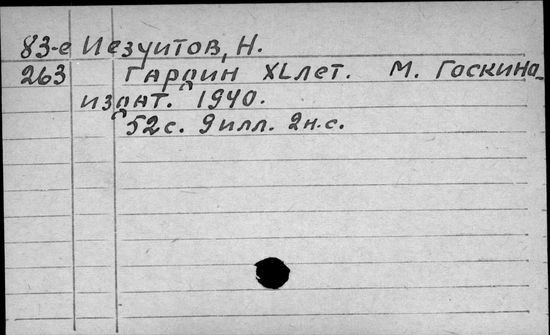 83-е Иезуитов, Н.
263 Гардин XL лет. М. Госкино-
издат. 1940.
52с. 9 илл. 2н.с.